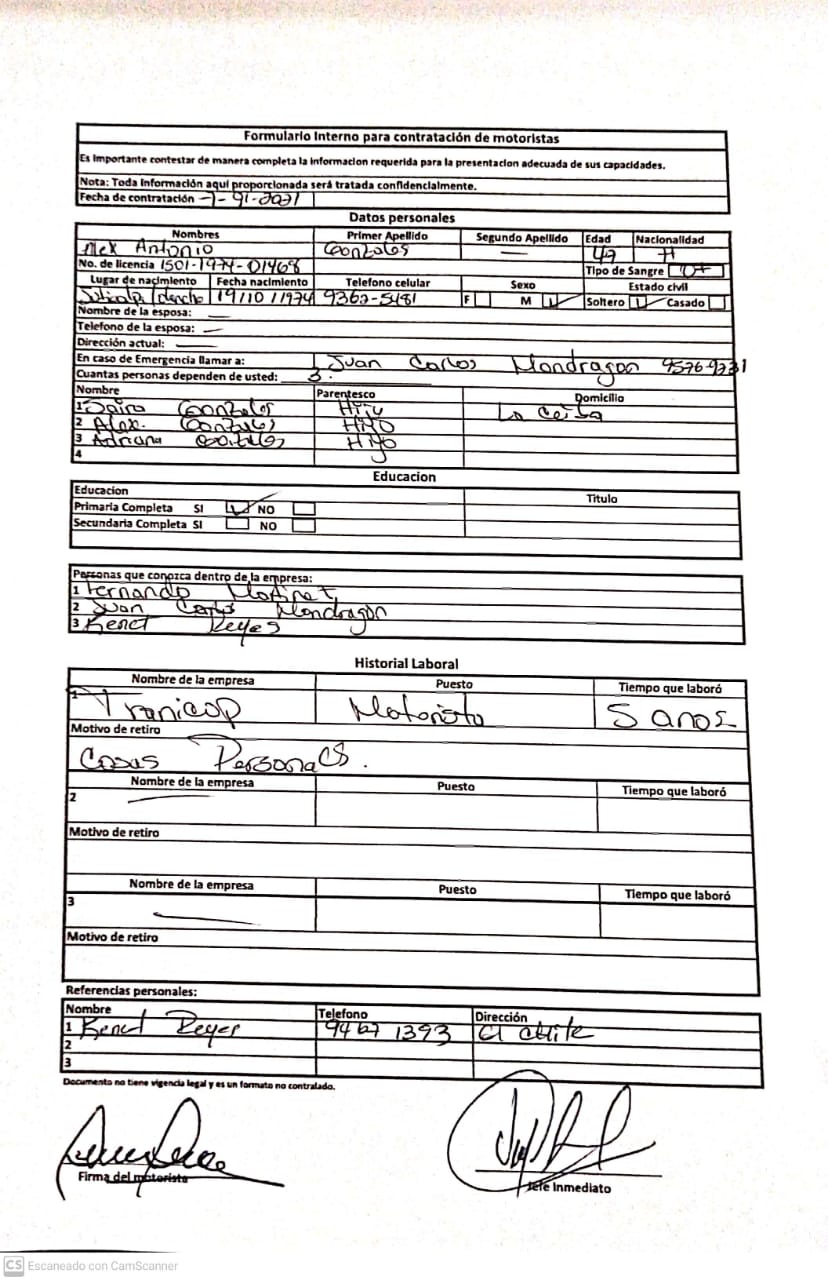 Formulario Interno para contratación de motoristas
Es Importante contestar de manera completa la informacion requerida para la presentacion adecuada de sus capacidades.
Nota: Toda información aqui proporcionada será tratada confidencialmente.
Fecha de contratación
Datos personales
Nombres Primer Apellido Segundo Apellido Edad Nacionalidad
Alex Antonio Gonzales — H
No. de licencia 1501-1974-01468 Tipo de Sangre O+
Lugar de nacimiento Fecha nacimiento Telefono celular Sexo Estado civil
19/10/1974 9362-5481 F M Soltero Casado
Nombre de la esposa: —
Telefono de la esposa: —
Dirección actual: —
En caso de Emergencia llamar a: Juan Carlos Mondragon 9576-9231
Cuantas personas dependen de usted: 3.
Nombre Parentesco Domicilio
1 Gonzales La Ceiba
2 Alex. Gonzales Hijo
3 Adriana Gonzales Hijo
4
Educacion
Educacion Titulo
Primaria Completa SI NO
Secundaria Completa SI NO
Personas que conozca dentro de la empresa:
1 Fernando
2 Juan Carlos Mondragon
3 Kenet Reyes
Historial Laboral
Nombre de la empresa Puesto Tiempo que laboró
1 Tranicop Motorista 5 anos
Motivo de retiro
Cosas Personales.
Nombre de la empresa Puesto Tiempo que laboró
2 —
Motivo de retiro
Nombre de la empresa Puesto Tiempo que laboró
3 —
Motivo de retiro
Referencias personales:
Nombre Telefono Dirección
1 Kenet Reyes 9467 1393 El Chile
2
3
Documento no tiene vigencia legal y es un formato no contralado.
Firma del motorista Jefe Inmediato
CS Escaneado con CamScanner